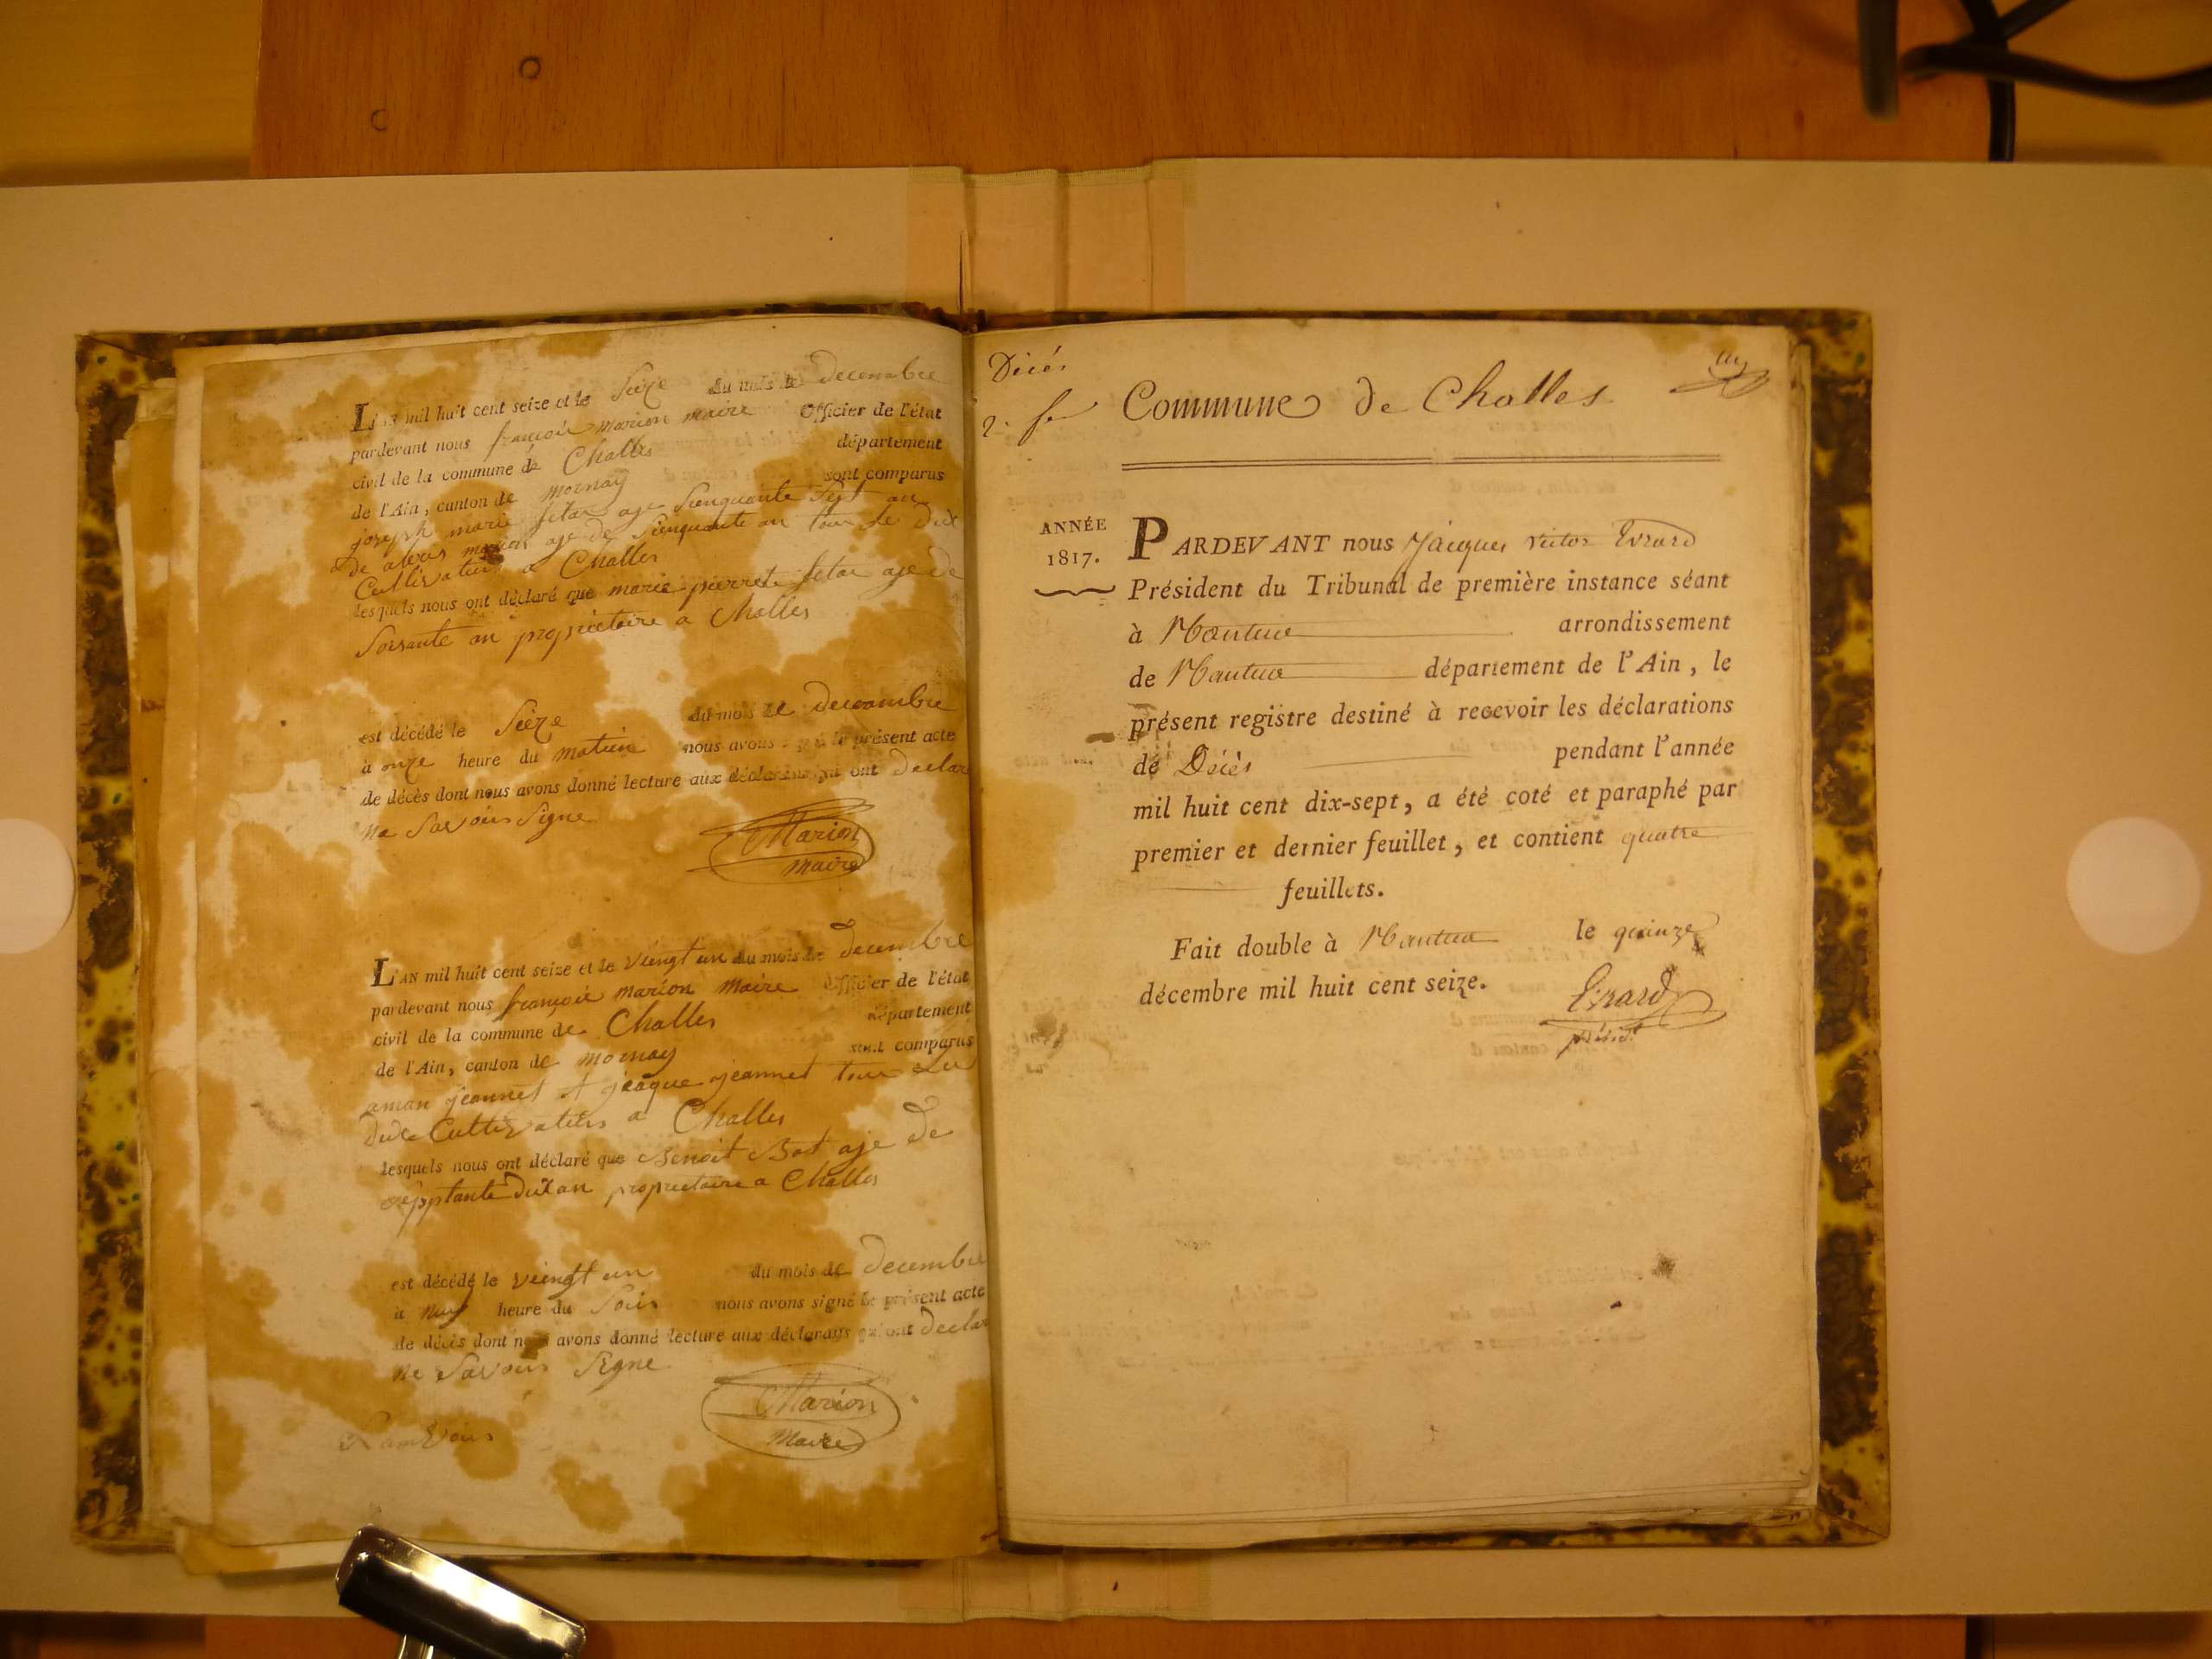 L'AN mil huit cent seize et le Seize du mois de decembre
pardevant nous françois marion maire Officier de l'état
civil de la commune de Challes département
de l'Ain, canton de mornay sont comparus
joseph marie fetaz aje sienquante sept an
de alexis marion aje de sienquante an tous de dit
Cultivateur a Challes
lesquels nous ont déclaré que marie pierrete fetaz aje de
Soixante an propriectaire a Challes
est décédé le Seize du mois de decembre
à onze heure du matien nous avons signé le présent acte
de décès dont nous avons donné lecture aux déclarans qui ont declare
ne Savoir Signe
Marion
maire
L'AN mil huit cent seize et le viengt un du mois de decembre
pardevant nous françois marion maire Officier de l'état
civil de la commune de Challes département
de l'Ain, canton de mornay sont comparus
aman jeannet et jeaque jeannet tous
Cultivateurs a Challes
lesquels nous ont déclaré que Benoit Bot aje de
propriectaire a Challes
est décédé le viengt un du mois de decembre
à heure du Soir nous avons signé le présent acte
de décès dont nous avons donné lecture aux déclarans qui ont declare
ne Savoir Signe
Marion
maire
Décés
2.
Commune de Challes
ANNÉE
1817.
PARDEVANT nous Jacques Victor Evrard
Président du Tribunal de première instance séant
à Nantua arrondissement
de Nantua département de l'Ain, le
présent registre destiné à recevoir les déclarations
de Décès pendant l'année
mil huit cent dix-sept, a été coté et paraphé par
premier et dernier feuillet, et contient quatre
feuillets.
Fait double à Nantua le quinze
décembre mil huit cent seize.
Evrard
présidt